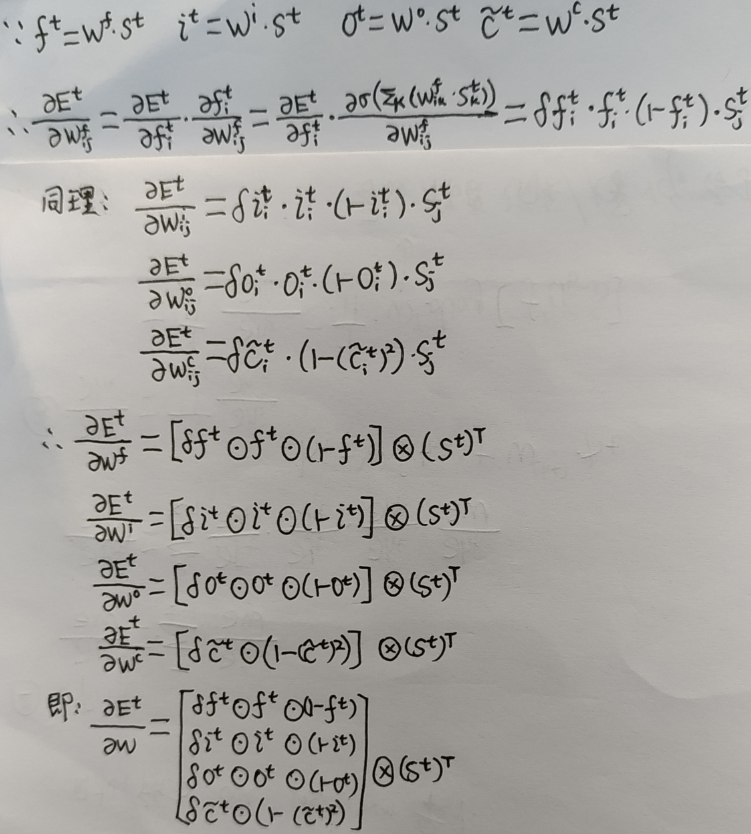 ∵ f^t=W^f·S^t i^t=W^i·S^t O^t=W^o·S^t c̃^t=W^c·S^t
∴ ∂E^t/∂W^f_ij = ∂E^t/∂f_i^t · ∂f_i^t/∂W^f_ij = ∂E^t/∂f_i^t · ∂σ(Σ_k(W^f_ik·S_k^t))/∂W^f_ij = δf_i^t·f_i^t·(1-f_i^t)·S_j^t
同理: ∂E^t/∂W^i_ij = δi_i^t·i_i^t·(1-i_i^t)·S_j^t
∂E^t/∂W^o_ij = δO_i^t·O_i^t·(1-O_i^t)·S_j^t
∂E^t/∂W^c_ij = δc̃_i^t·(1-(c̃_i^t)²)·S_j^t
∴ ∂E^t/∂W^f = [δf^t⊙f^t⊙(1-f^t)]⊗(S^t)^T
∂E^t/∂W^i = [δi^t⊙i^t⊙(1-i^t)]⊗(S^t)^T
∂E^t/∂W^o = [δO^t⊙O^t⊙(1-O^t)]⊗(S^t)^T
∂E^t/∂W^c = [δc̃^t⊙(1-(c̃^t)²)]⊗(S^t)^T
即: ∂E^t/∂W = [δf^t⊙f^t⊙(1-f^t)
δi^t⊙i^t⊙(1-i^t)
δO^t⊙O^t⊙(1-O^t)
δc̃^t⊙(1-(c̃^t)²)]⊗(S^t)^T